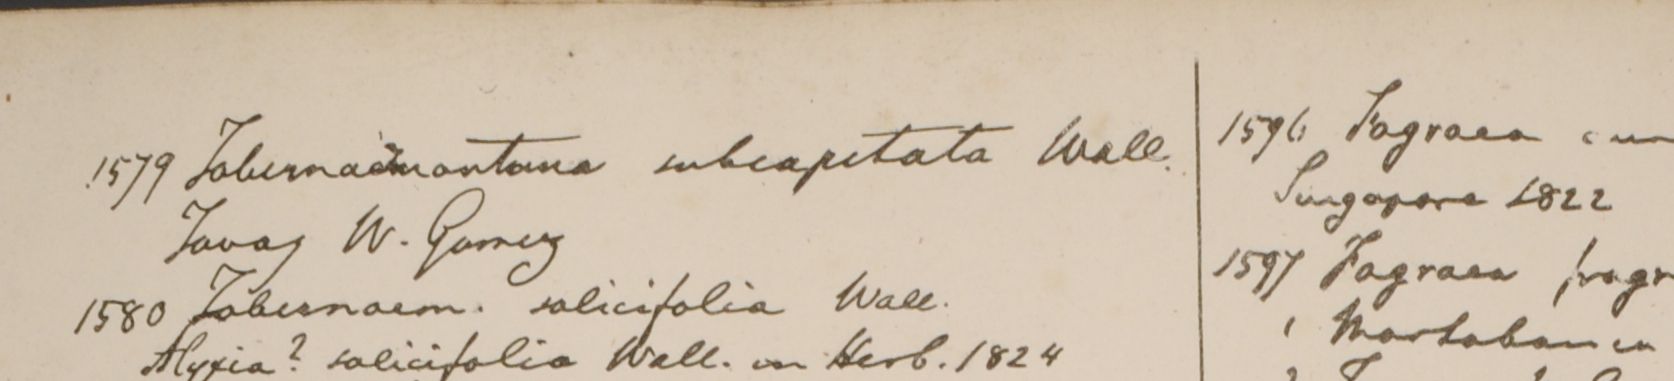 1579 Tabernaemontana subcapitata Wall.
Tavoy W. Gomez
1580 Tabernaem. salicifolia Wall.
Alyxia? salicifolia Wall. in Herb. 1824
1596 Fagraea
Singapore 1822
1597 Fagraea fragr
Martaban